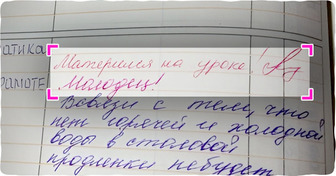 атика
рамоте
Матерился на уроке!
Молодец!
Вовязи с тем, что
нет горячей и холодной
воды в столовой
продленки небудет